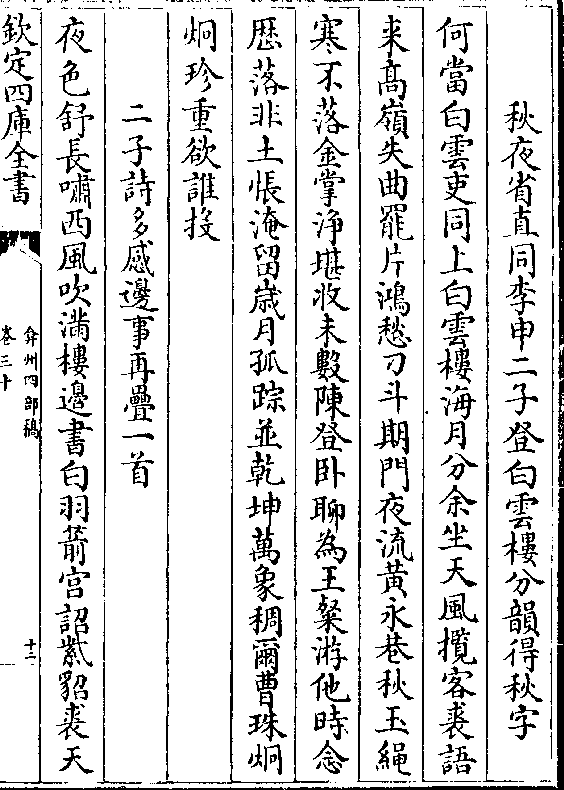 秋夜省直同李申二子登白雲樓分韻得秋字
何當白雲吏同上白雲樓海月分余坐天風攬客裘語
来髙嶺失曲罷片鴻愁刀斗期門夜流黃永巷秋玉繩
寒不落金掌淨堪收未數陳登卧聊為王粲游他時念
歴落非土悵淹留歳月孤踪並乾坤萬象稠爾曹珠炯
炯珍重欲誰投
二子詩多感邊事再疊一首
夜色舒長嘯西風吹滿樓邊書白羽箭宫詔紫貂裘天
欽定四庫全書
弇州四部稿
卷三十
十二